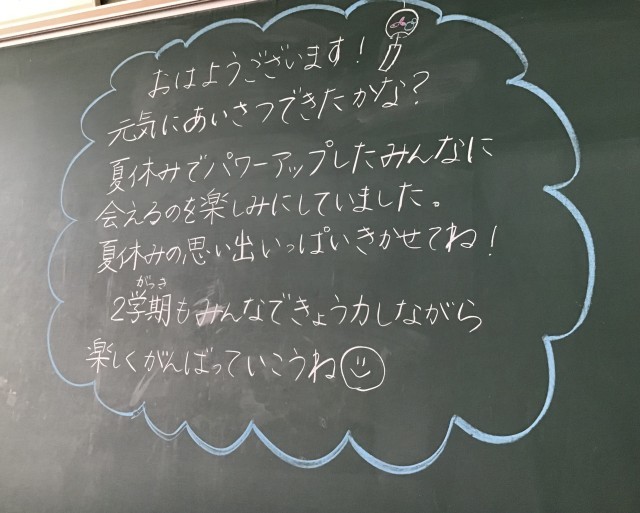 おはようございます！
元気にあいさつできたかな？
夏休みでパワーアップしたみんなに
会えるのを楽しみにしていました。
夏休みの思い出いっぱいきかせてね！
がっき
2学期もみんなできょう力しながら
楽しくがんばっていこうね